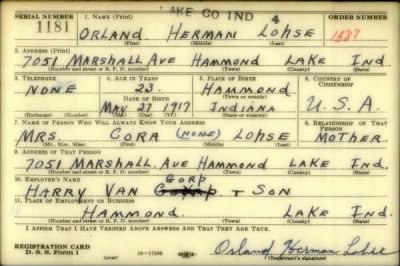 LAKE CO IND 4
SERIAL NUMBER 1. NAME (Print) ORDER NUMBER
1181 ORLAND HERMAN LOHSE 1587
(First) (Middle) (Last)
2. ADDRESS (Print)
7051 MARSHALL AVE HAMMOND LAKE IND.
(Number and street or R. F. D. number) (Town) (County) (State)
3. TELEPHONE 4. AGE IN YEARS 5. PLACE OF BIRTH 6. COUNTRY OF CITIZENSHIP
NONE 23. HAMMOND
DATE OF BIRTH (Town or county)
MAY 27 1917 INDIANA U.S.A.
(Exchange) (Number) (Mo.) (Day) (Yr.) (State or country)
7. NAME OF PERSON WHO WILL ALWAYS KNOW YOUR ADDRESS 8. RELATIONSHIP OF THAT PERSON
MRS. CORA (NONE) LOHSE MOTHER.
(Mr., Mrs., Miss) (First) (Middle) (Last)
9. ADDRESS OF THAT PERSON
7051 MARSHALL AVE HAMMOND LAKE IND.
(Number and street or R. F. D. number) (Town) (County) (State)
10. EMPLOYER'S NAME GORP
HARRY VAN & SON
11. PLACE OF EMPLOYMENT OR BUSINESS
HAMMOND. LAKE IND.
(Number and street or R. F. D. number) (Town) (County) (State)
I AFFIRM THAT I HAVE VERIFIED ABOVE ANSWERS AND THAT THEY ARE TRUE.
REGISTRATION CARD
D. S. S. Form 1 Orland Herman Lohse
(Registrant's signature)